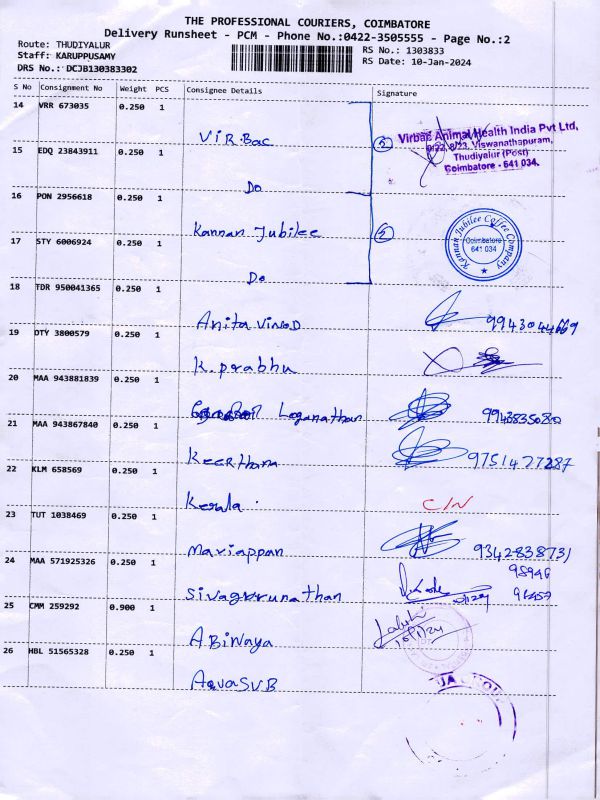 THE PROFESSIONAL COURIERS, COIMBATORE
Delivery Runsheet - PCM - Phone No.:0422-3505555 - Page No.:2
Route: THUDIYALUR
Staff: KARUPPUSAMY
DRS No.: DCJB130383302
RS No.: 1303833
RS Date: 10-Jan-2024
S No Consignment No Weight PCS Consignee Details Signature
14 VRR 673035 0.250 1 VIR.Bac
2 Virbac Animal Health India Pvt Ltd,
8/22, 8/23, Viswanathapuram,
Thudiyalur (Post)
Coimbatore - 641 034.
15 EDQ 23843911 0.250 1 Do
16 PON 2956618 0.250 1 Kannan Jubilee
2 Kannan Jubilee Coffee Company
Coimbatore
641 034
17 STY 6006924 0.250 1 Do
18 TDR 950041365 0.250 1 Anita Vinod 9943044669
19 DTY 3800579 0.250 1 K. prabhu
20 MAA 943881839 0.250 1 Loganathan
21 MAA 943867840 0.250 1 Keerthana 9751427287
22 KLM 658569 0.250 1 Kerala. C/N
23 TUT 1038469 0.250 1 Mariappan 9342838731
24 MAA 571925326 0.250 1 Sivagurunathan 98946
25 CMM 259292 0.900 1 ABiNaya
10/1/24
26 HBL 51565328 0.250 1 AqvaSUB